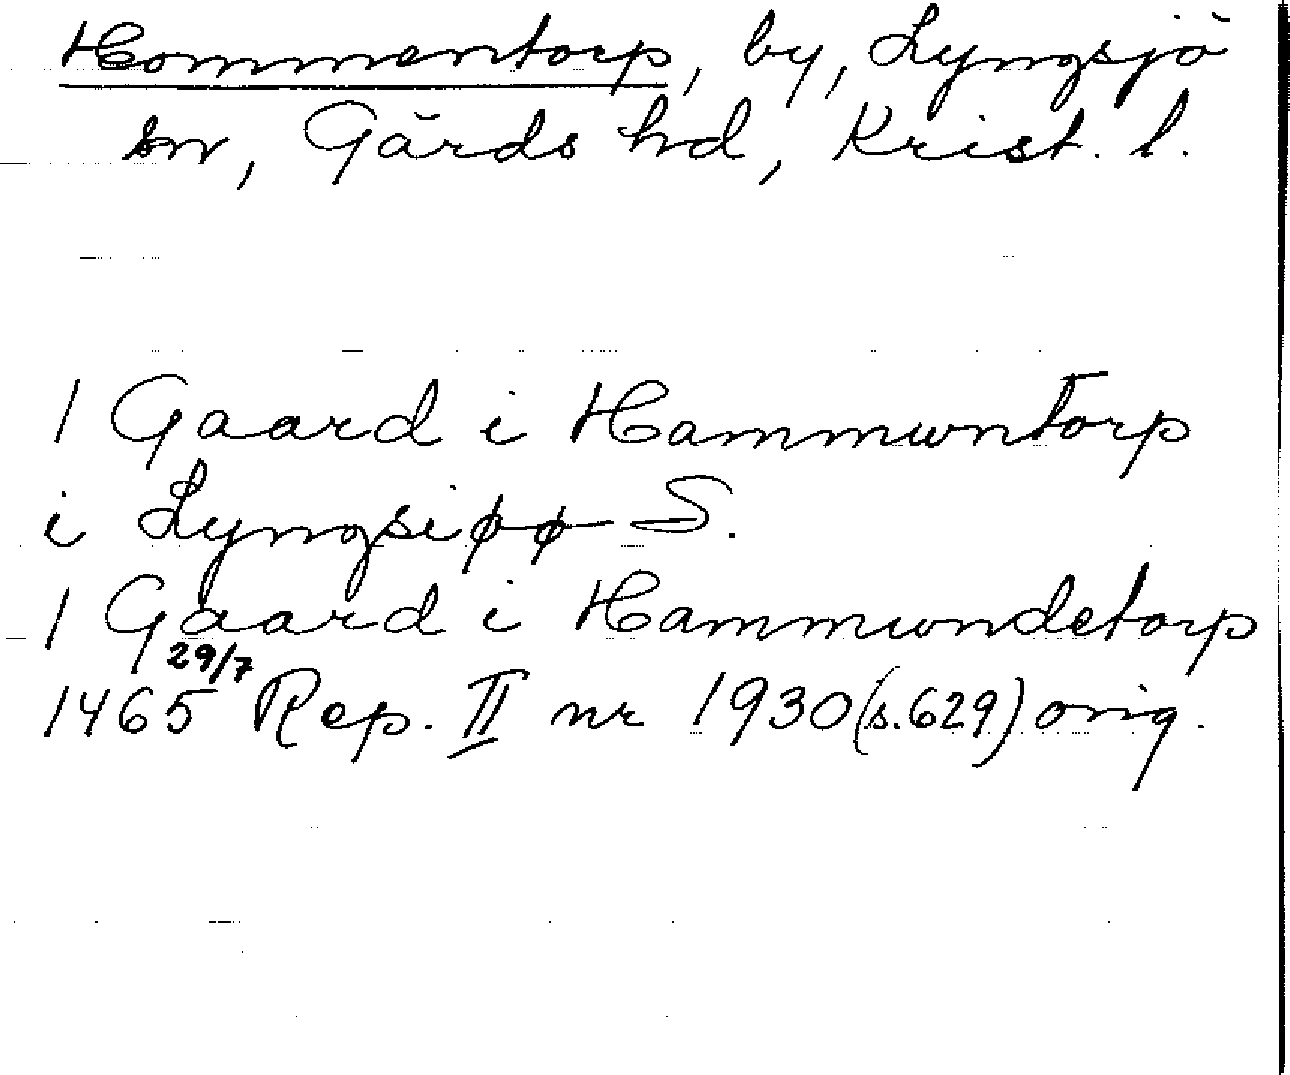 Hommentorp, by, Lyngsjö
sn, Gärds hd, Krist. l.
1 Gaard i Hammwntorp
i Lyngsiøø S.
1 Gaard i Hammwndetorp
29/7
1465 Rep. II nr 1930 (s. 629) orig.